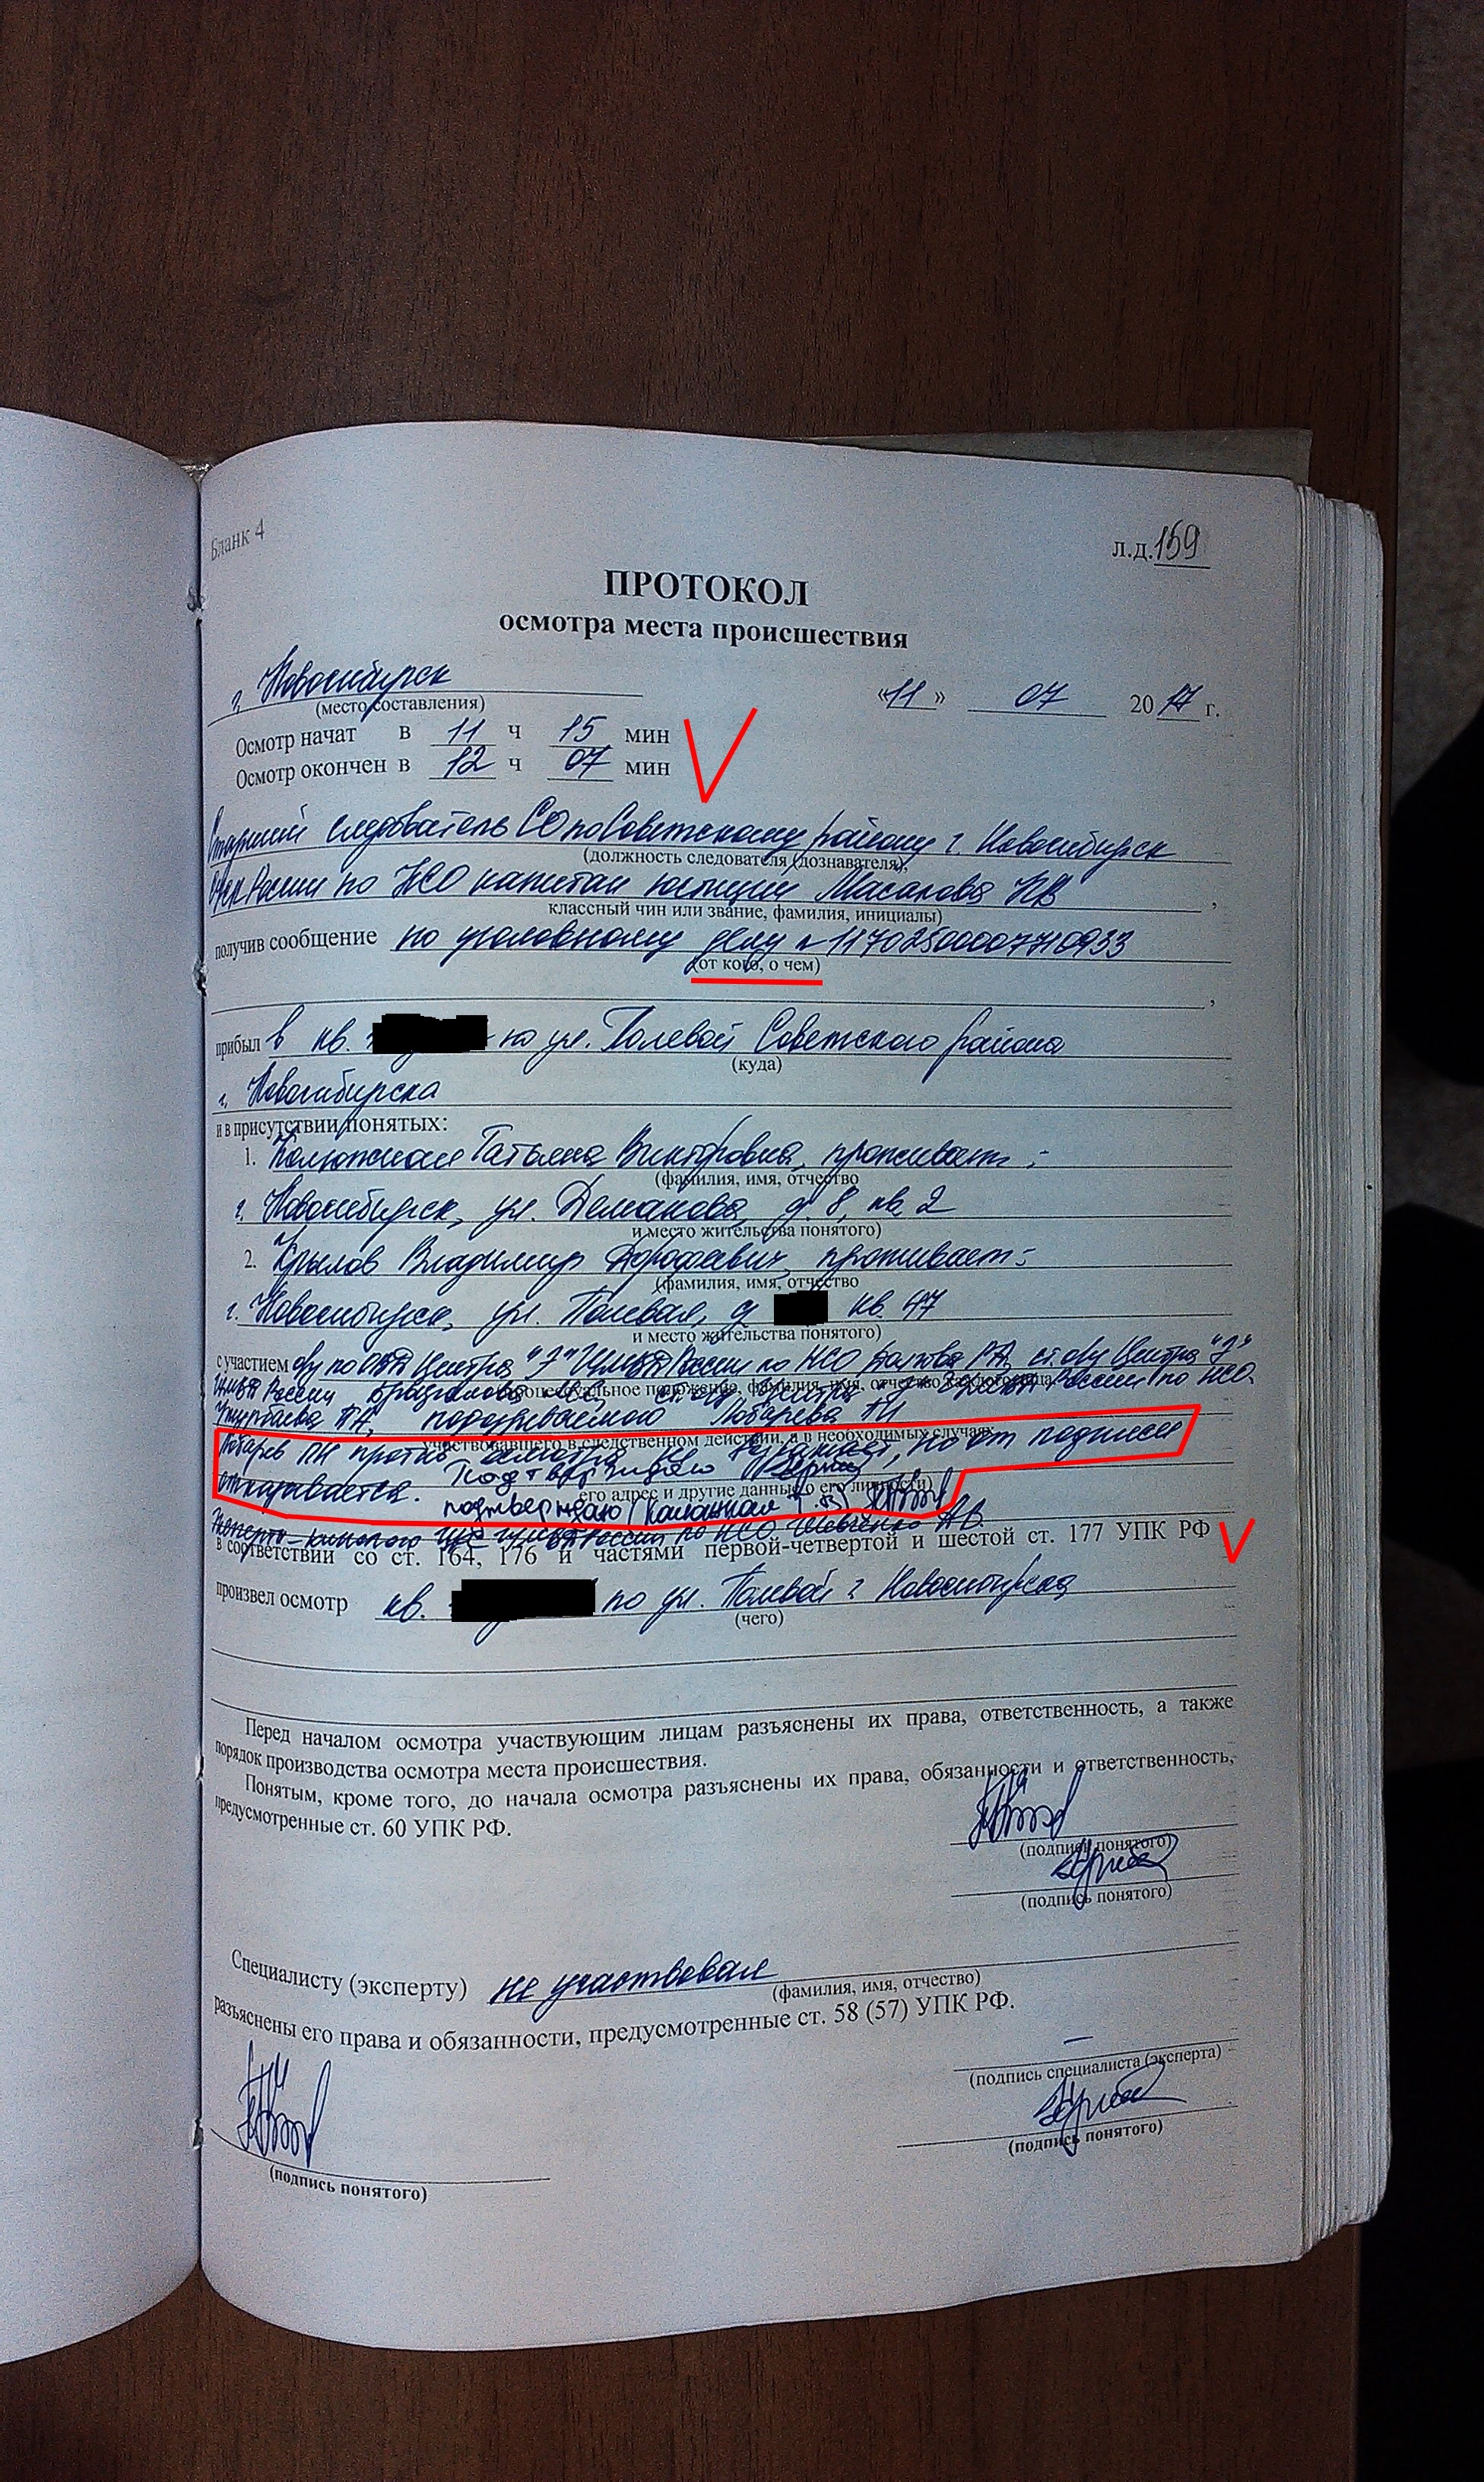 Бланк 4
л.д. 159
ПРОТОКОЛ
осмотра места происшествия
г. Новосибирск
«11» 07 2017 г.
(место составления)
Осмотр начат в 11 ч 15 мин
Осмотр окончен в 12 ч 07 мин
Старший следователь СО по Советскому району г. Новосибирск
(должность следователя (дознавателя),
России по НСО капитан юстиции Масалова НВ
классный чин или звание, фамилия, инициалы)
получив сообщение по уголовному делу №
(от кого, о чем)
прибыл в кв. по ул. Полевой Советского района
(куда)
г. Новосибирска
и в присутствии понятых:
1. Татьяна Викторовна, проживает:
(фамилия, имя, отчество
г. Новосибирск, ул. Демакова, д. 8, кв. 2
и место жительства понятого)
2. Крылов Владимир Дорофеевич, проживает:
(фамилия, имя, отчество
г. Новосибирск, ул. Полевая, д кв. 47
и место жительства понятого)
с участием о/у по Центра "Э" России по НСО ст. о/у Центра "Э"
процессуальное положение, фамилия, имя, отчество каждого лица,
России ст. о/у Центра "Э" России по НСО
подозреваемого Лобарева ПИ
участвовавшего в следственном действии, а в необходимых случаях
Лобарев ПИ против осмотра не возражает, но от подписи
отказывается. Подтверждаю
его адрес и другие данные о его личности)
подтверждаю
Эксперта-кинолога ГУ МВД России по НСО Шевченко АВ.
в соответствии со ст. 164, 176 и частями первой-четвертой и шестой ст. 177 УПК РФ
произвел осмотр кв. по ул. Полевой г. Новосибирска
(чего)
Перед началом осмотра участвующим лицам разъяснены их права, ответственность, а также
порядок производства осмотра места происшествия.
Понятым, кроме того, до начала осмотра разъяснены их права, обязанности и ответственность,
предусмотренные ст. 60 УПК РФ.
(подпись понятого)
(подпись понятого)
Специалисту (эксперту) не участвовал
(фамилия, имя, отчество)
разъяснены его права и обязанности, предусмотренные ст. 58 (57) УПК РФ.
(подпись специалиста (эксперта)
(подпись понятого)
(подпись понятого)